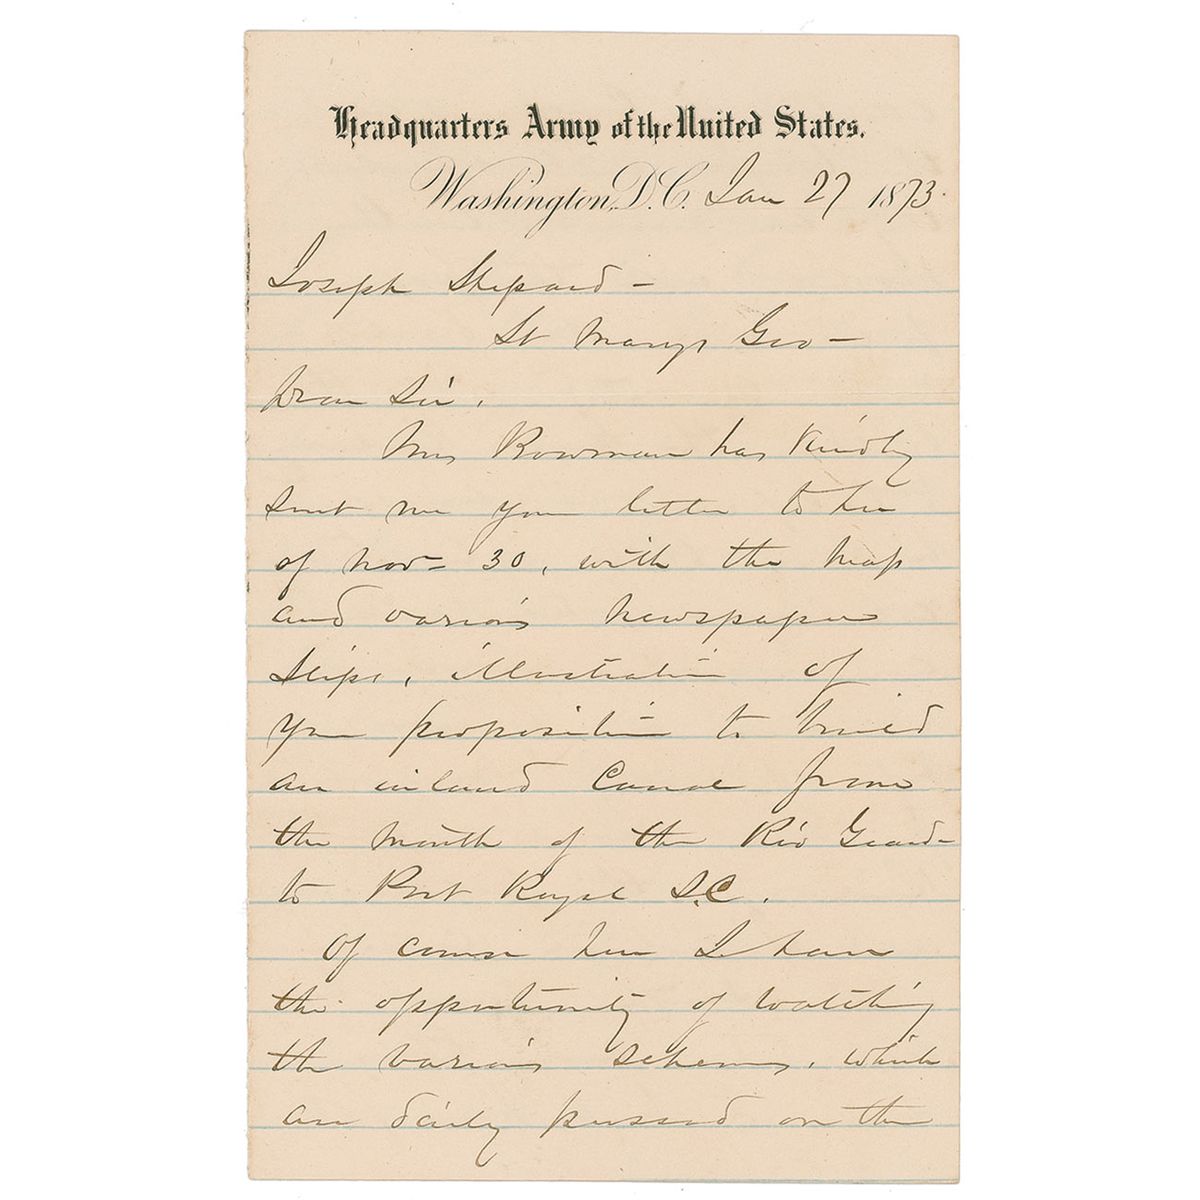 Headquarters Army of the United States.
Washington, D.C. Jan 27 1873.
Joseph Shepard -
St Marys Geo -
Dear Sir,
Mrs Bowman has kindly
sent me your letter to her
of Nov- 30, with the map
and various newspaper
slips, illustration of
your proposition to build
an inland Canal from
the mouth of the Rio Grand-
to Port Royal S.C.
Of course here I have
the opportunity of watching
the various schemes, which
are daily pressed on the